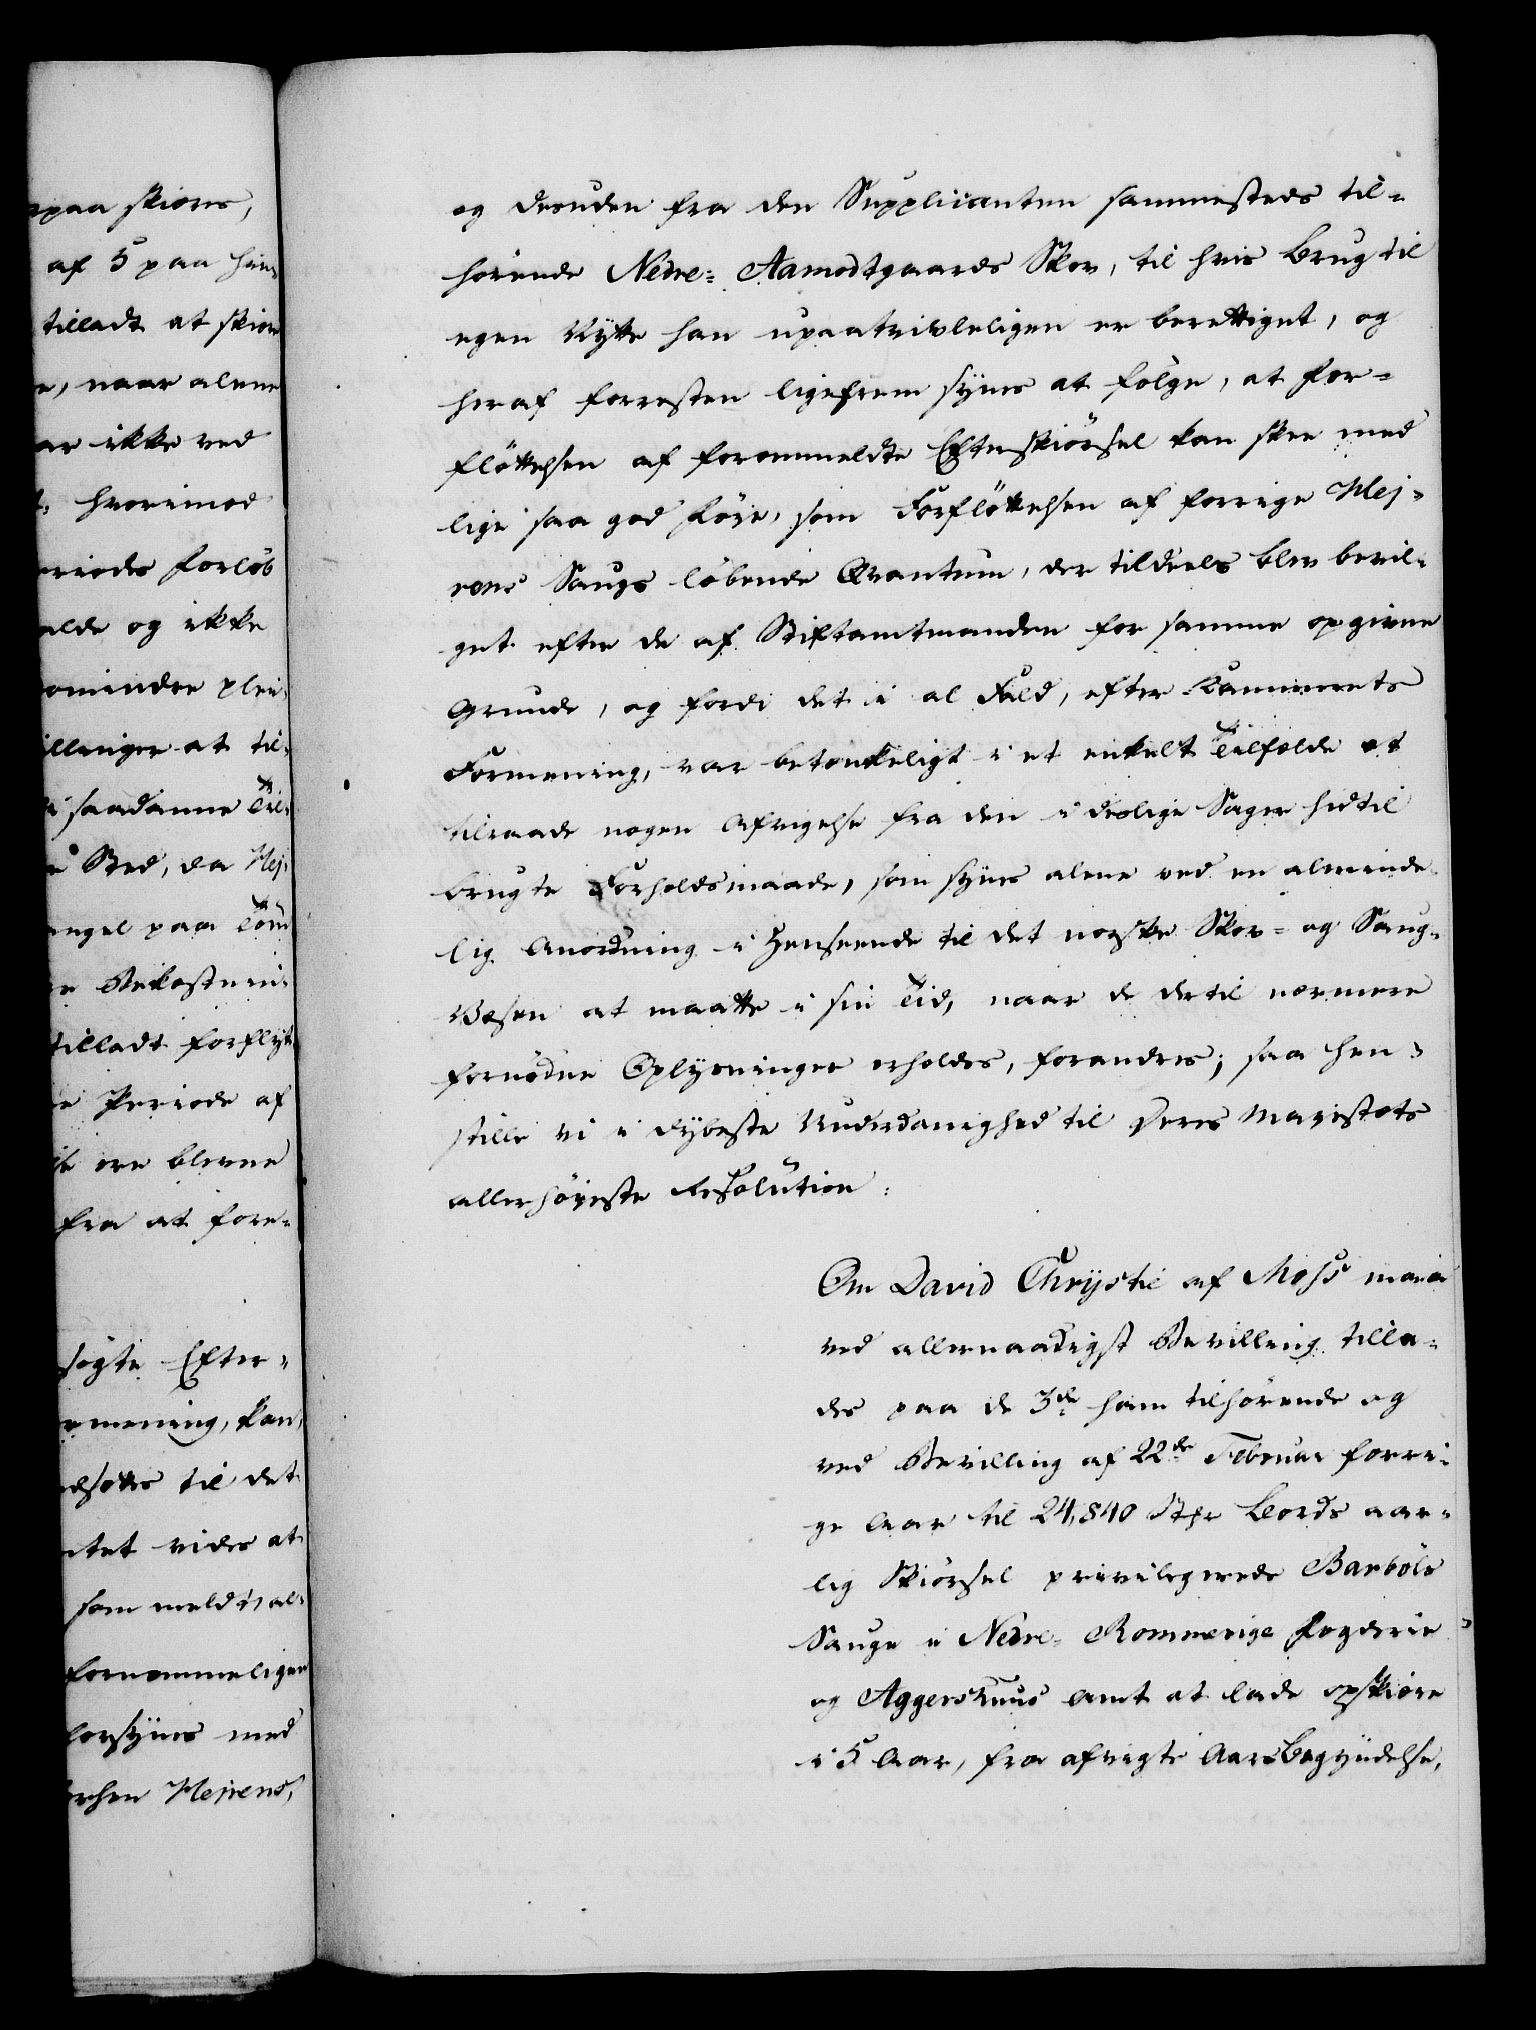 paa skiæres,
af 5 paa hin¬
tilladt at skiære
e, naar alene
ar ikke ved
hvorimod
eriodes Forløb
alde og ikke
omindre plei¬
illinger at til¬
saadanne Til¬
Sted, da Mej¬
angel paa Tøm
re Bekostnin¬
tilladt forflyt
e Periode af
ere blevne
fra at fore¬
søgte Efter¬
rmening, kan,
dsættes til det
ntet vides at
som meldt, al¬
fornemmeligen
forsynes med
rsken Mejrens,
og desuden fra den Supplicanten sammesteds til¬
hørende Nedre= Aamodtgaards Skov, til hvis Brug til
egen Nytte han upaatvivleligen er berettiget, og
heraf forresten ligefrem synes at følge, at For¬
fløttelsen af forommeldte Efterskiørsel kan skee med
lige saa god Føje, som Forfløttelsen af forrige Mej¬
rens Saugs løbende Qvantum, der tildeels blev bevil¬
get efter de af Stiftamtmanden for samme opgivne
Grunde, og fordi det i al Fald, efter Kammerets
Formening, var betænkeligt i et enkelt Tilfælde at
tilraade nogen Afvigelse fra den i deslige Sager hidtil
brugte Forholdsmaade, som synes alene ved en alminde¬
lig Anordning i Henseende til det norske Skov= og Saug¬
Væsen at maatte i sin Tid, naar de dertil nærmere
fornødne Oplysninger erholdes, forandres; saa hen¬
stille vi i dybeste Underdanighed til Deres Majestæts
allerhøjeste Resolution:
Om David Chrystie af Moss maae
ved allernaadigst Bevilling tilla¬
des paa de 3de ham tilhørende og
ved Bevilling af 22de Februar forri¬
ge Aar til 24,840 Stkr Bords aar¬
lig Skiørsel privilegerede Barbøls
Sauge i Nedre= Rommerige Fogderie
og Aggershuus Amt at lade opskiære
i 5 Aar, fra afvigte Aars Begyndelse,